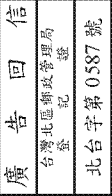 廣告回信
台灣北區郵政管理局
登記證
北台字第0587號